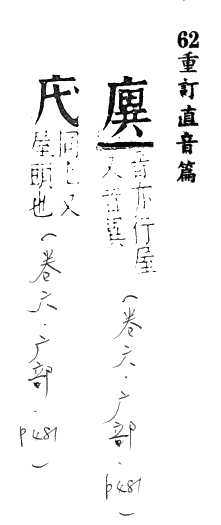 62重訂直音篇
廙
音亦行屋
又音異
(卷六．广部．p481)
同上又
屋頭也
(卷六．广部．p481)